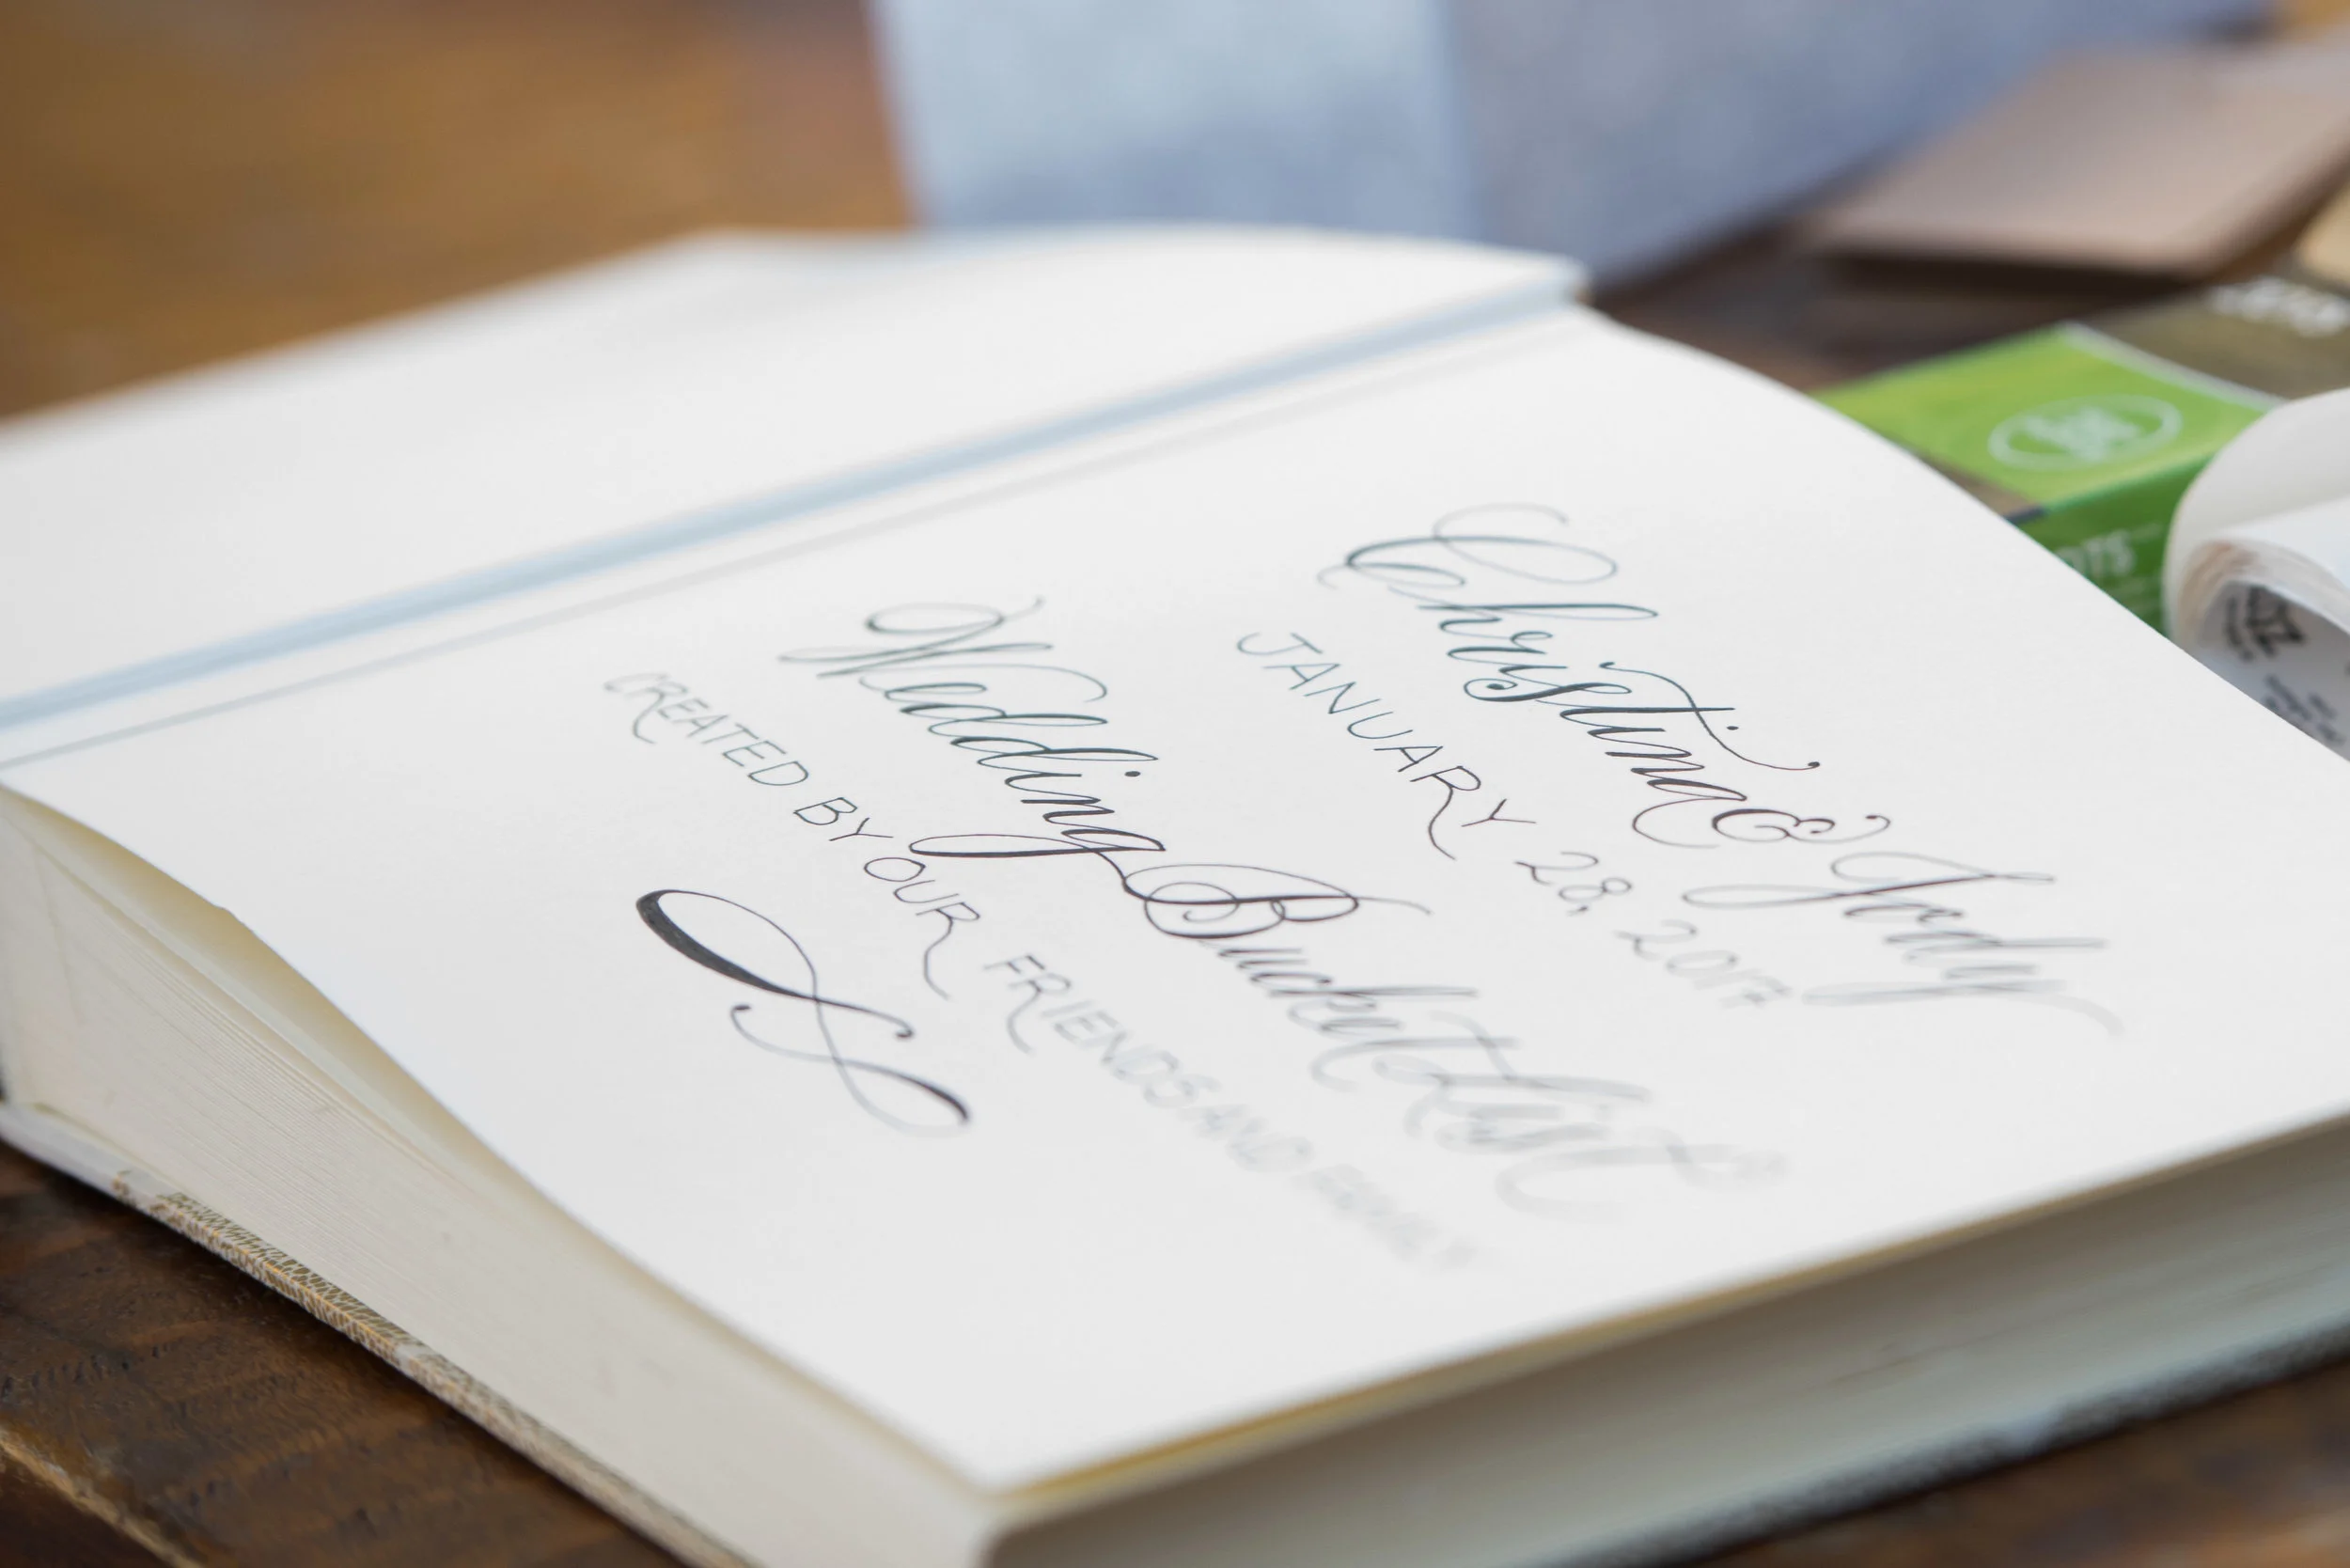 Christina & Jody
JANUARY 28, 2017
Wedding Bucket List
CREATED BY OUR FRIENDS AND FAMILY